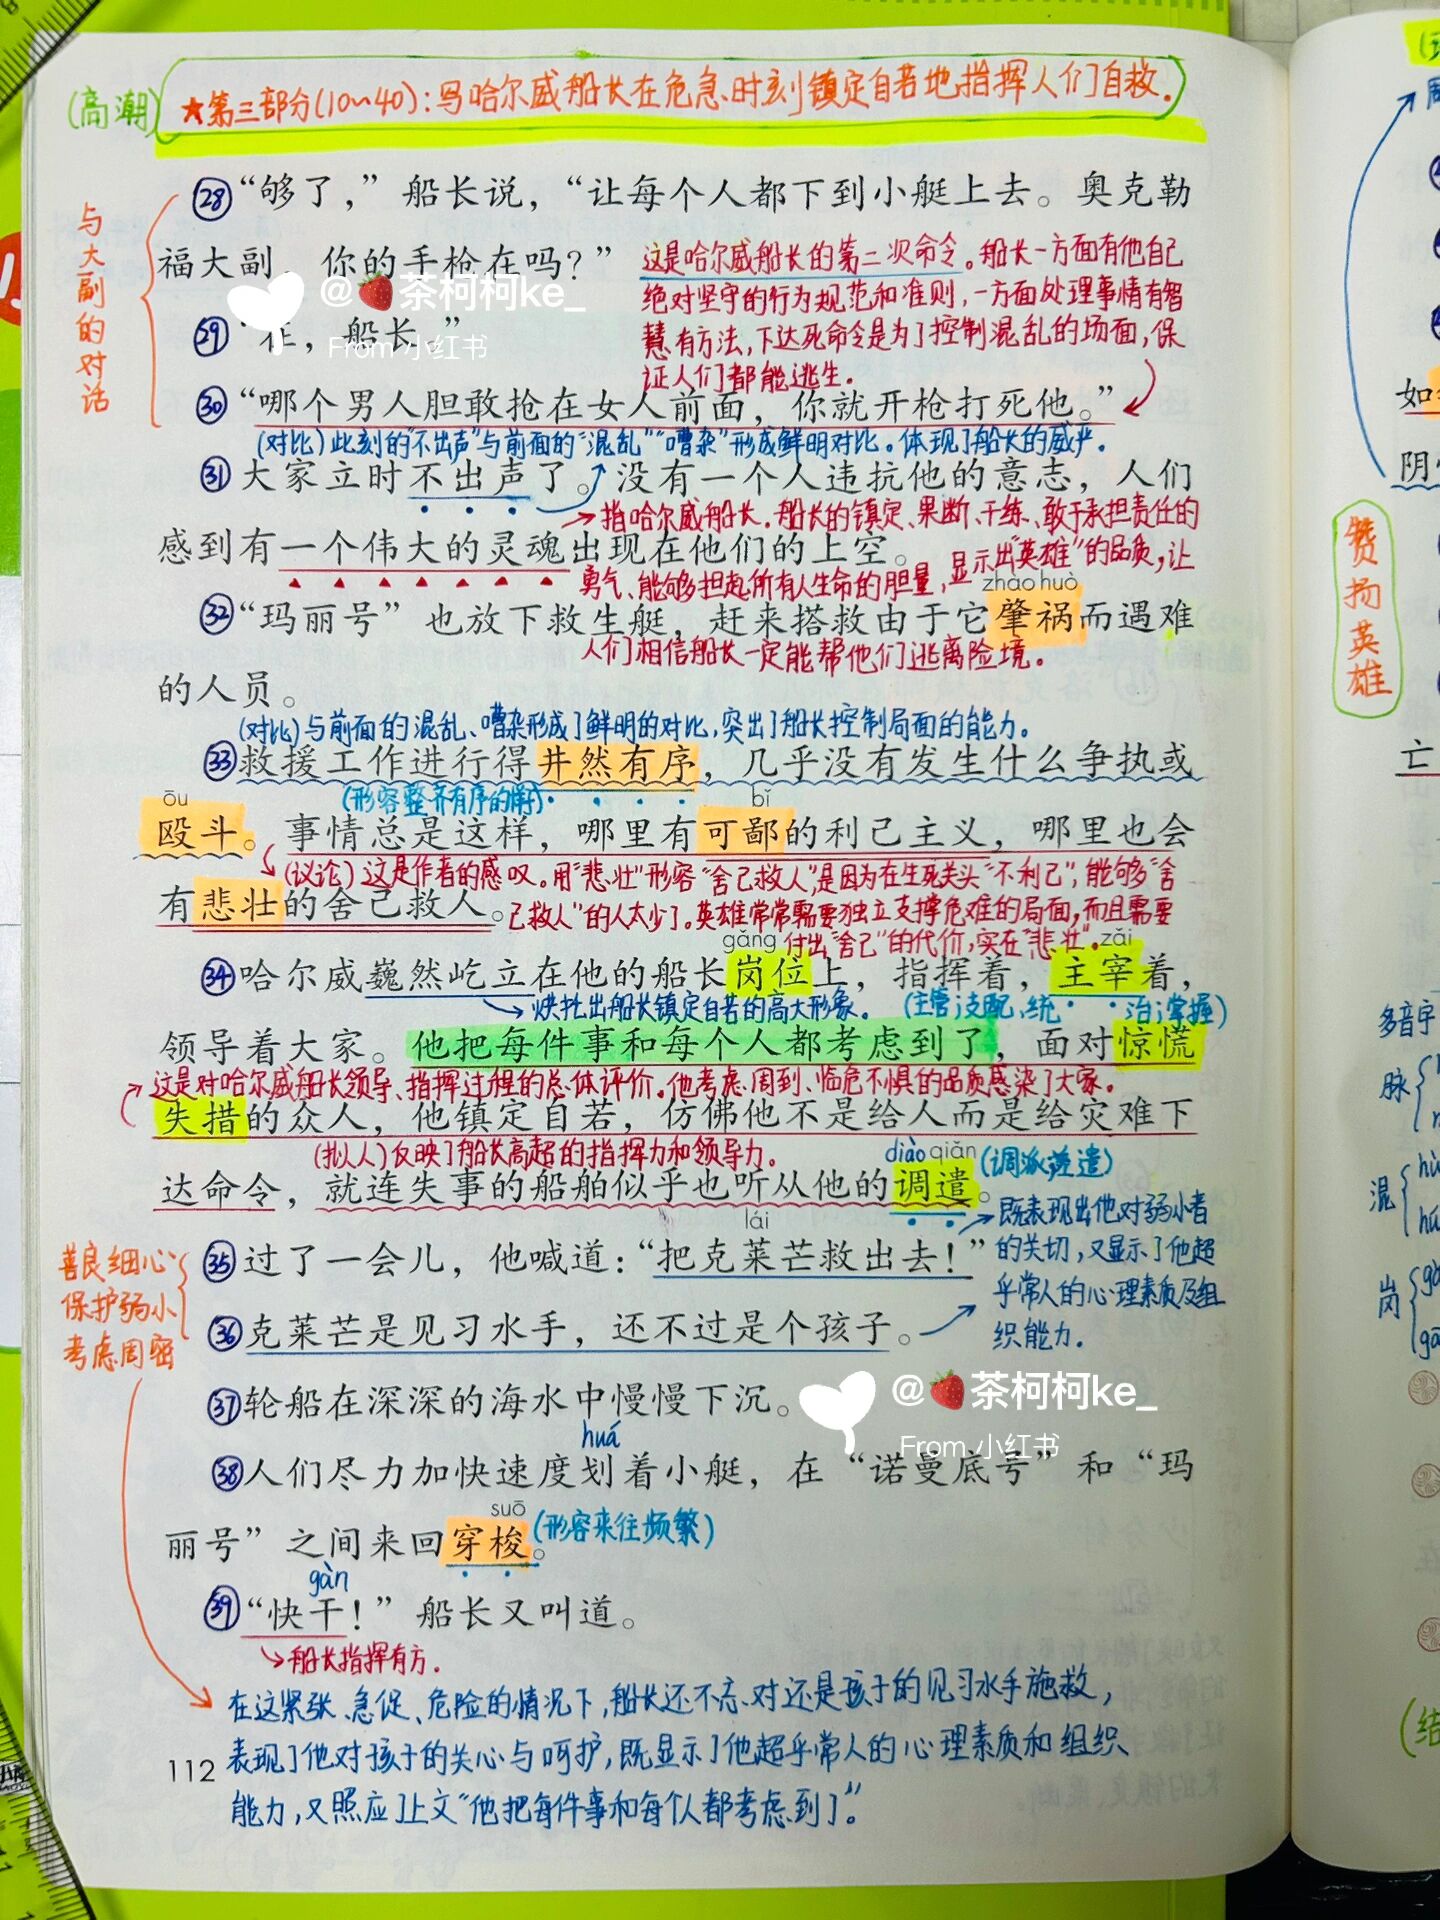 (高潮) ★第三部分(10~40):哈尔威船长在危急时刻镇定自若地指挥人们自救.
与大副的对话
㉘“够了,”船长说,“让每个人都下到小艇上去。奥克勒
福大副,你的手枪在吗?”
这是哈尔威船长的第二次命令。船长一方面有他自己
绝对坚守的行为规范和准则,一方面处理事情有智
慧有方法,下达死命令是为了控制混乱的场面,保
证人们都能逃生.
@🍓茶柯柯ke_
From 小红书
㉙“在,船长。”
㉚“哪个男人胆敢抢在女人前面,你就开枪打死他。”
(对比)此刻的“不出声”与前面的“混乱”“嘈杂”形成鲜明对比。体现了船长的威严.
㉛大家立时不出声了。没有一个人违抗他的意志,人们
→指哈尔威船长.船长的镇定、果断、干练、敢于承担责任的
感到有一个伟大的灵魂出现在他们的上空。
勇气、能够担起所有人生命的胆量,显示出“英雄”的品质,让
zhào huò
㉜“玛丽号”也放下救生艇,赶来搭救由于它肇祸而遇难
人们相信船长一定能帮他们逃离险境.
的人员。
(对比)与前面的混乱、嘈杂形成了鲜明的对比,突出了船长控制局面的能力.
㉝救援工作进行得井然有序,几乎没有发生什么争执或
(形容整齐有序的样)
ōu
bǐ
殴斗。事情总是这样,哪里有可鄙的利己主义,哪里也会
(议论)这是作者的感叹。用“悲壮”形容“舍己救人”,是因为在生死关头“不利己”,能够“舍
有悲壮的舍己救人。
己救人”的人太少了.英雄常常需要独立支撑危难的局面,而且需要
付出“舍己”的代价,实在“悲壮”.
gǎng
zǎi
㉞哈尔威巍然屹立在他的船长岗位上,指挥着,主宰着,
→烘托出船长镇定自若的高大形象.
(主管;支配、统治;掌握)
领导着大家。他把每件事和每个人都考虑到了,面对惊慌
这是对哈尔威船长领导、指挥过程的总体评价.他考虑周到、临危不惧的品质感染了大家.
失措的众人,他镇定自若,仿佛他不是给人而是给灾难下
(拟人)反映了船长高超的指挥力和领导力.
diào qiǎn
(调派差遣)
达命令,就连失事的船舶似乎也听从他的调遣。
lái
㉟过了一会儿,他喊道:“把克莱芒救出去!”
㊱克莱芒是见习水手,还不过是个孩子。
既表现出他对弱小者
的关切,又显示了他超
乎常人的心理素质及组
织能力.
善良细心
保护弱小
考虑周密
㊲轮船在深深的海水中慢慢下沉。
@🍓茶柯柯ke_
From 小红书
huá
㊳人们尽力加快速度划着小艇,在“诺曼底号”和“玛
suō
丽号”之间来回穿梭。
(形容来往频繁)
gàn
㊴“快干!”船长又叫道。
→船长指挥有方.
在这紧张、急促、危险的情况下,船长还不忘对还是孩子的见习水手施救,
表现了他对孩子的关心与呵护,既显示了他超乎常人的心理素质和组织
能力,又照应了上文“他把每件事和每个人都考虑到了”.
112
赞扬英雄
如
阴
亡
多音字
脉
混
岗
(结